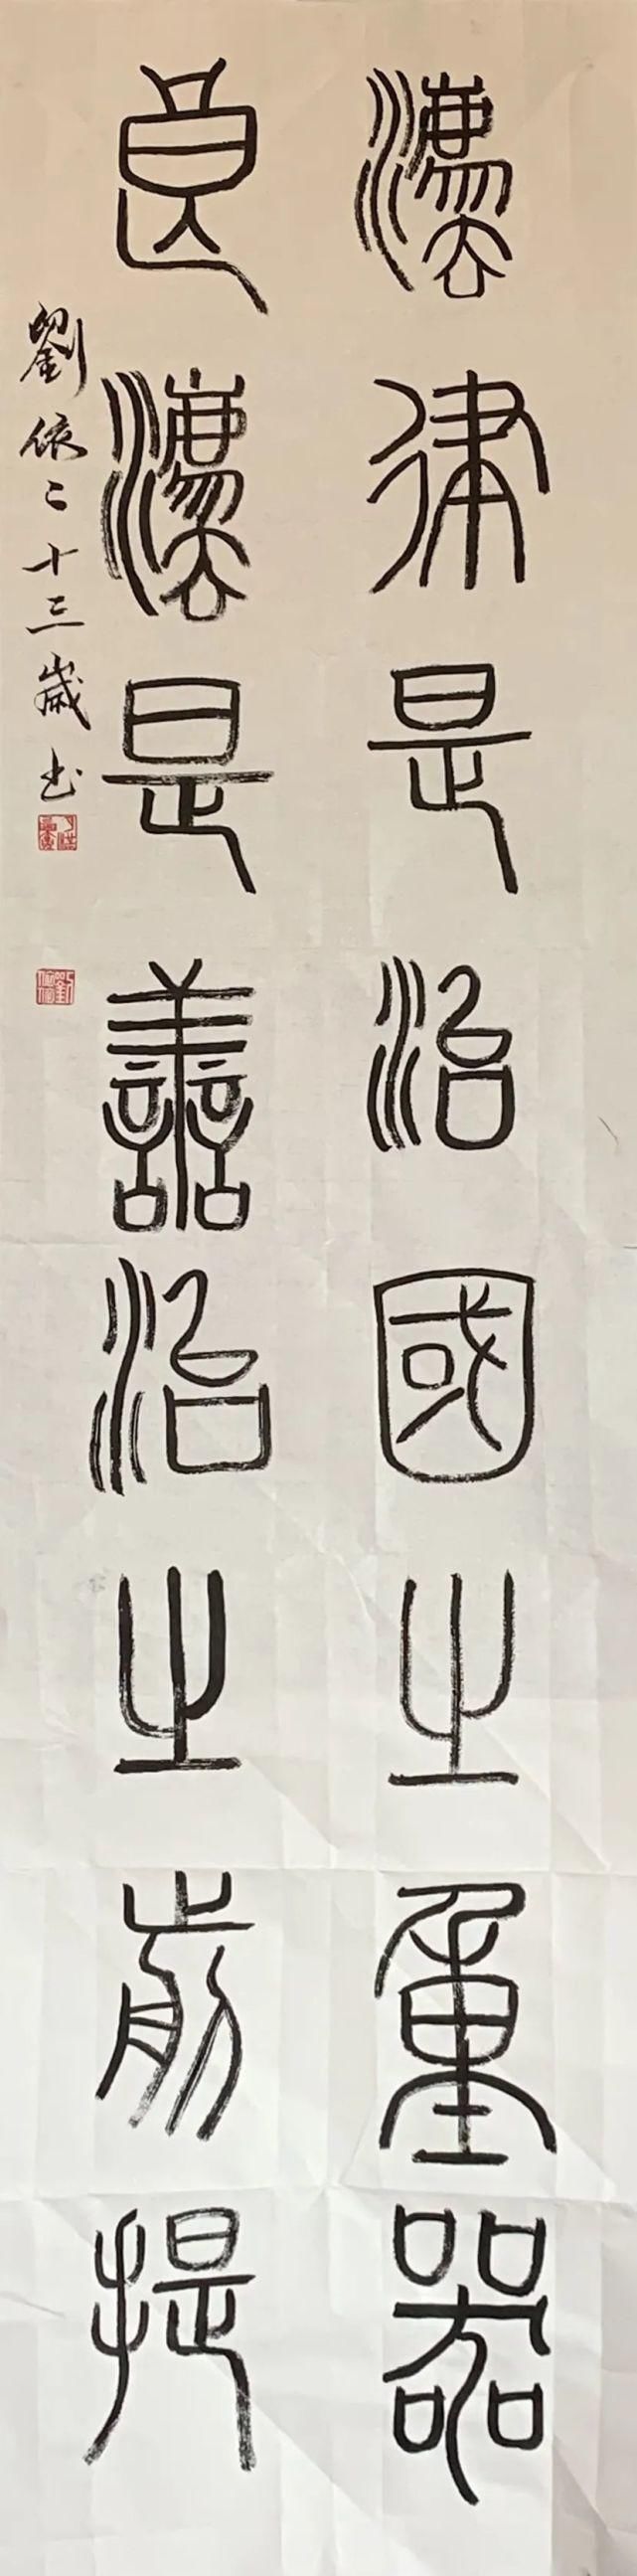 灋律是治國之重器
良灋是善治之前提
劉依二十三歲书